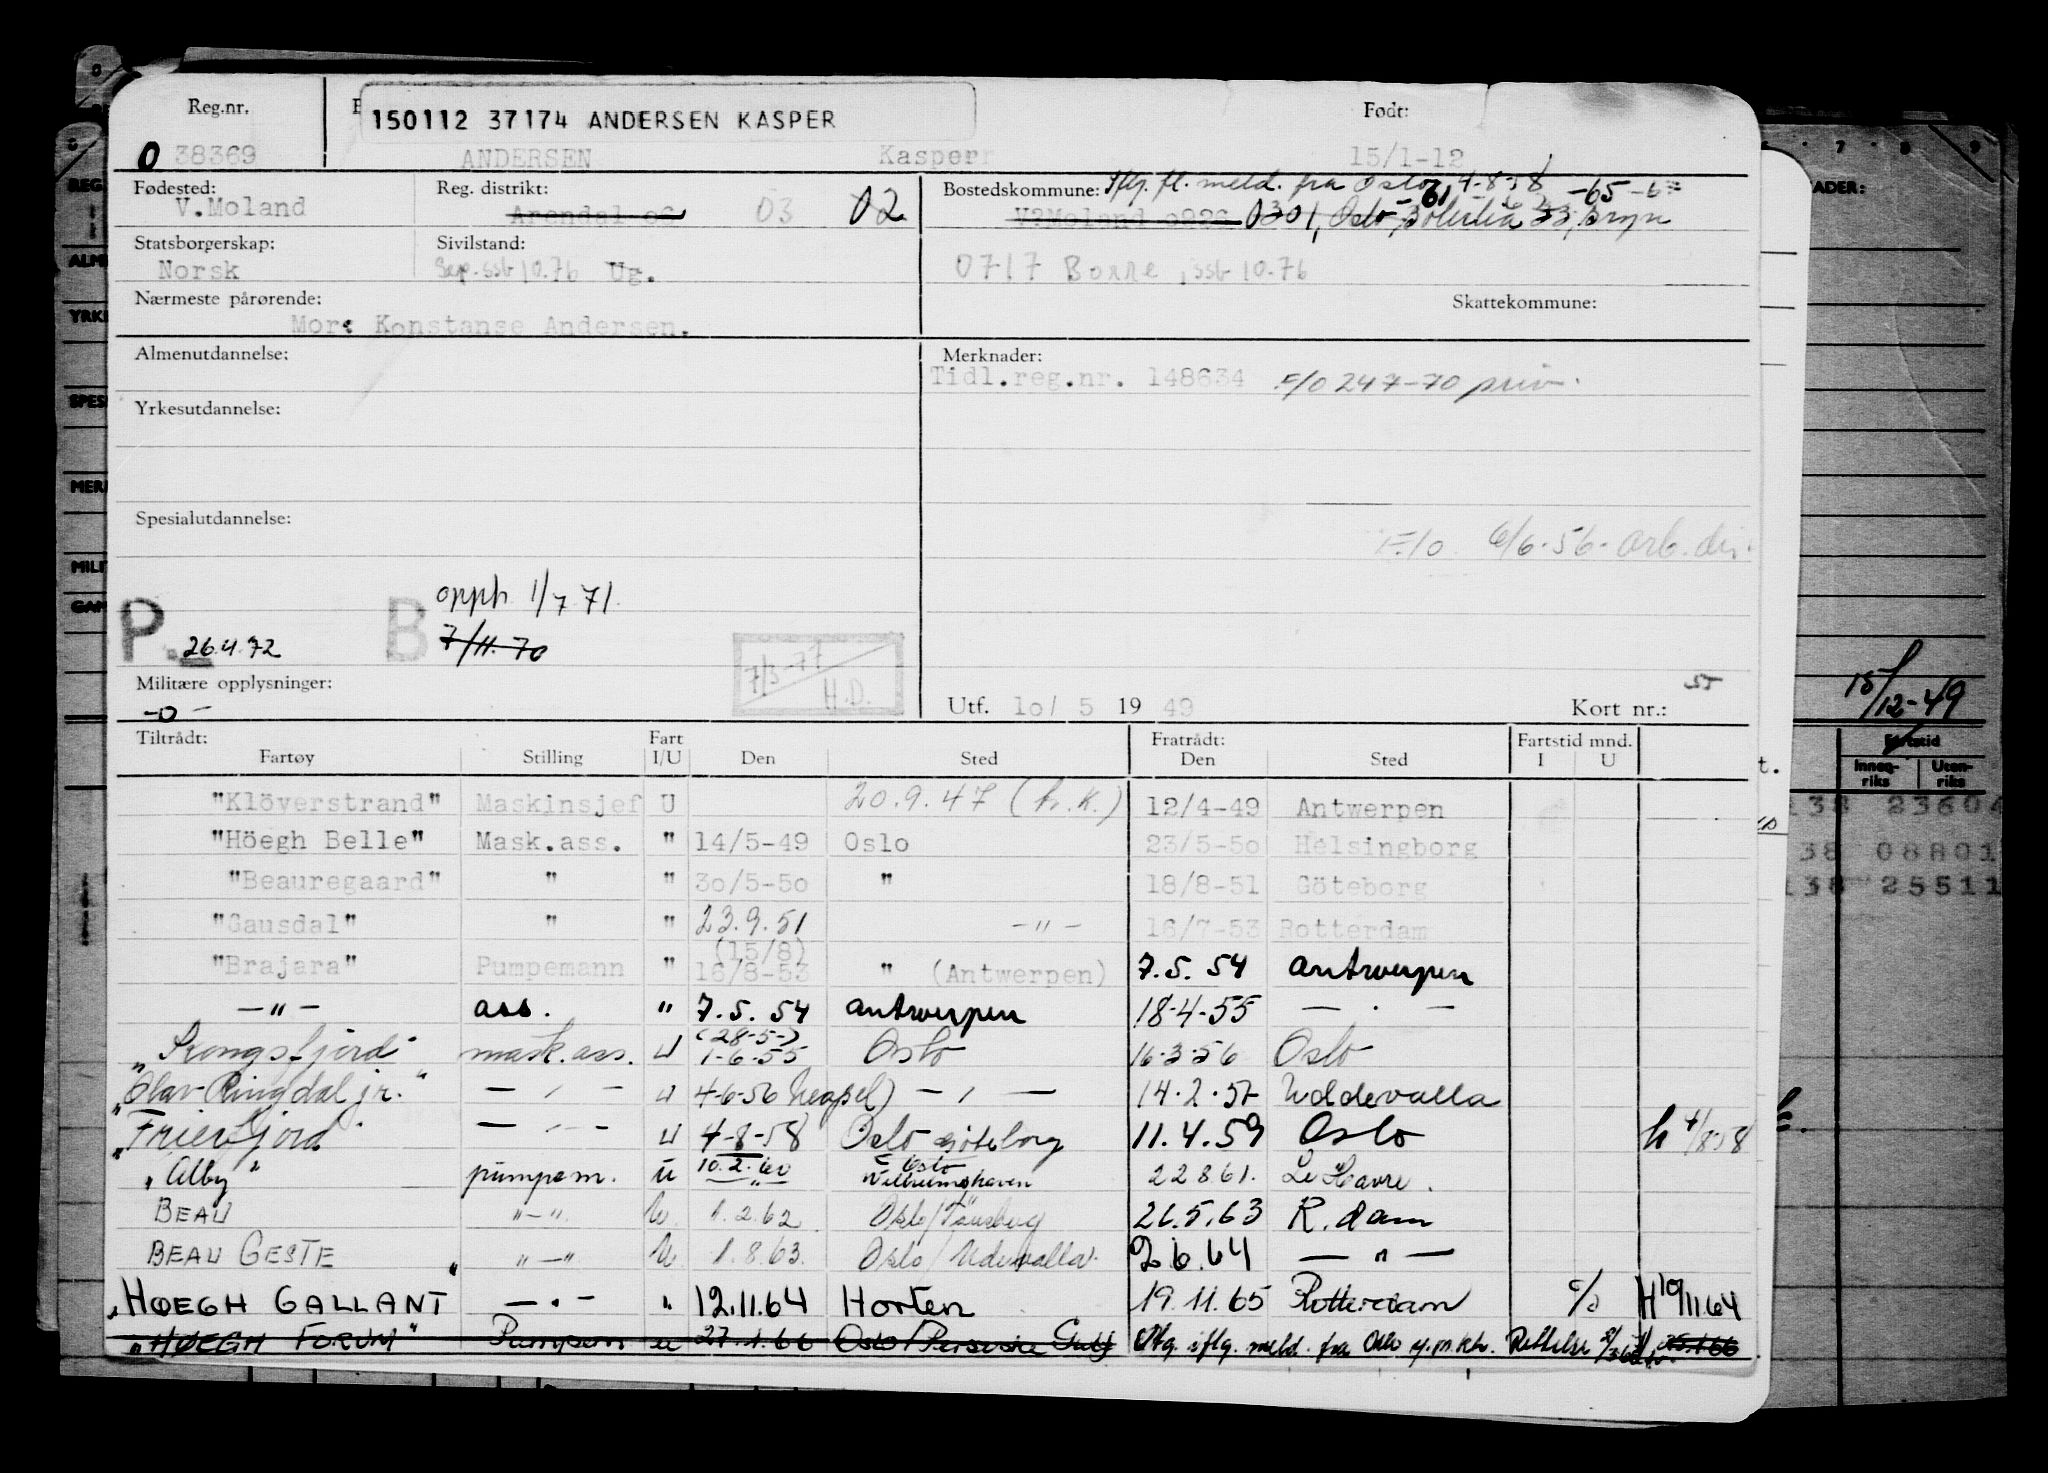 Reg.nr.
150112 37174 ANDERSEN KASPER
Født:
O 38369 ANDERSEN Kasper 15/1-12
Fødested: Reg. distrikt: Bostedskommune: Iflg. fl. meld. fra Oslo 4-8-58 -61 -65
V.Moland Arendal 03 02 V.Moland 0301, Oslo,
Statsborgerskap: Sivilstand:
Norsk Sep. ssb 10.76 Ug. 0717 Borre, ssb 10-76
Nærmeste pårørende: Skattekommune:
Mor: Konstanse Andersen.
Almenutdannelse: Merknader:
Tidl.reg.nr. 148634 F/O 247-70 priv.
Yrkesutdannelse:
Spesialutdannelse:
F/O 6/6-56- arb. dir.
opph 1/7 71.
P. 26.4.72 B 7/11. 70
7/3-77 H.D.
Militære opplysninger:
-0-
Utf. 10/ 5 19 49 Kort nr.:
15/12-49
Tiltrådt: Fart Fratrådt: Fartstid mnd. Fartstid
Fartøy Stilling I/U Den Sted Den Sted I U Innenriks Utenriks
"Klöverstrand" Maskinsjef U 20.9.47 (h.K.) 12/4-49 Antwerpen
"Höegh Belle" Mask.ass. " 14/5-49 Oslo 23/5-50 Helsingborg
"Beauregaard" " " 30/5-50 " 18/8-51 Göteborg
"Gausdal" " " 23.9.51 -"- 16/7-53 Rotterdam
"Brajara" Pumpemann " (15/8) 16/8-53 " (Antwerpen) 7.5.54 Antwerpen
-"- ass. " 7.5.54 Antwerpen 18-4-55 - . -
"Kongsfjord" mask.ass. U (28-5-) 1-6-55 Oslo 16-3-56 Oslo
"Olav Ringdal jr." - " - U 4-6-56 Neapel) - " - 14.2.57 Uddevalla
"Frierfjord" - " - U 4-8-58 Oslo Göteborg 11.4.59 Oslo h 4/8 58
"Alby" pumpem. U 10.2.60 Oslo Wilhelmshaven 22861. Le Havre.
BEAU "-" U. 1.2.62 Oslo/Tönsberg 26.5.63 R.dam
BEAU GESTE "-" U 1.8.63. Oslo/Udevalla 2.6.64 - " -
"HØEGH GALLANT - " - " 12.11.64 Horten 19.11.65 Rotterdam H 10/11 64
"HØEGH FORUM" Pumpem U 27.1.66 Oslo/Persiske Gulf iflg. meld. fra Oslo Rettelse